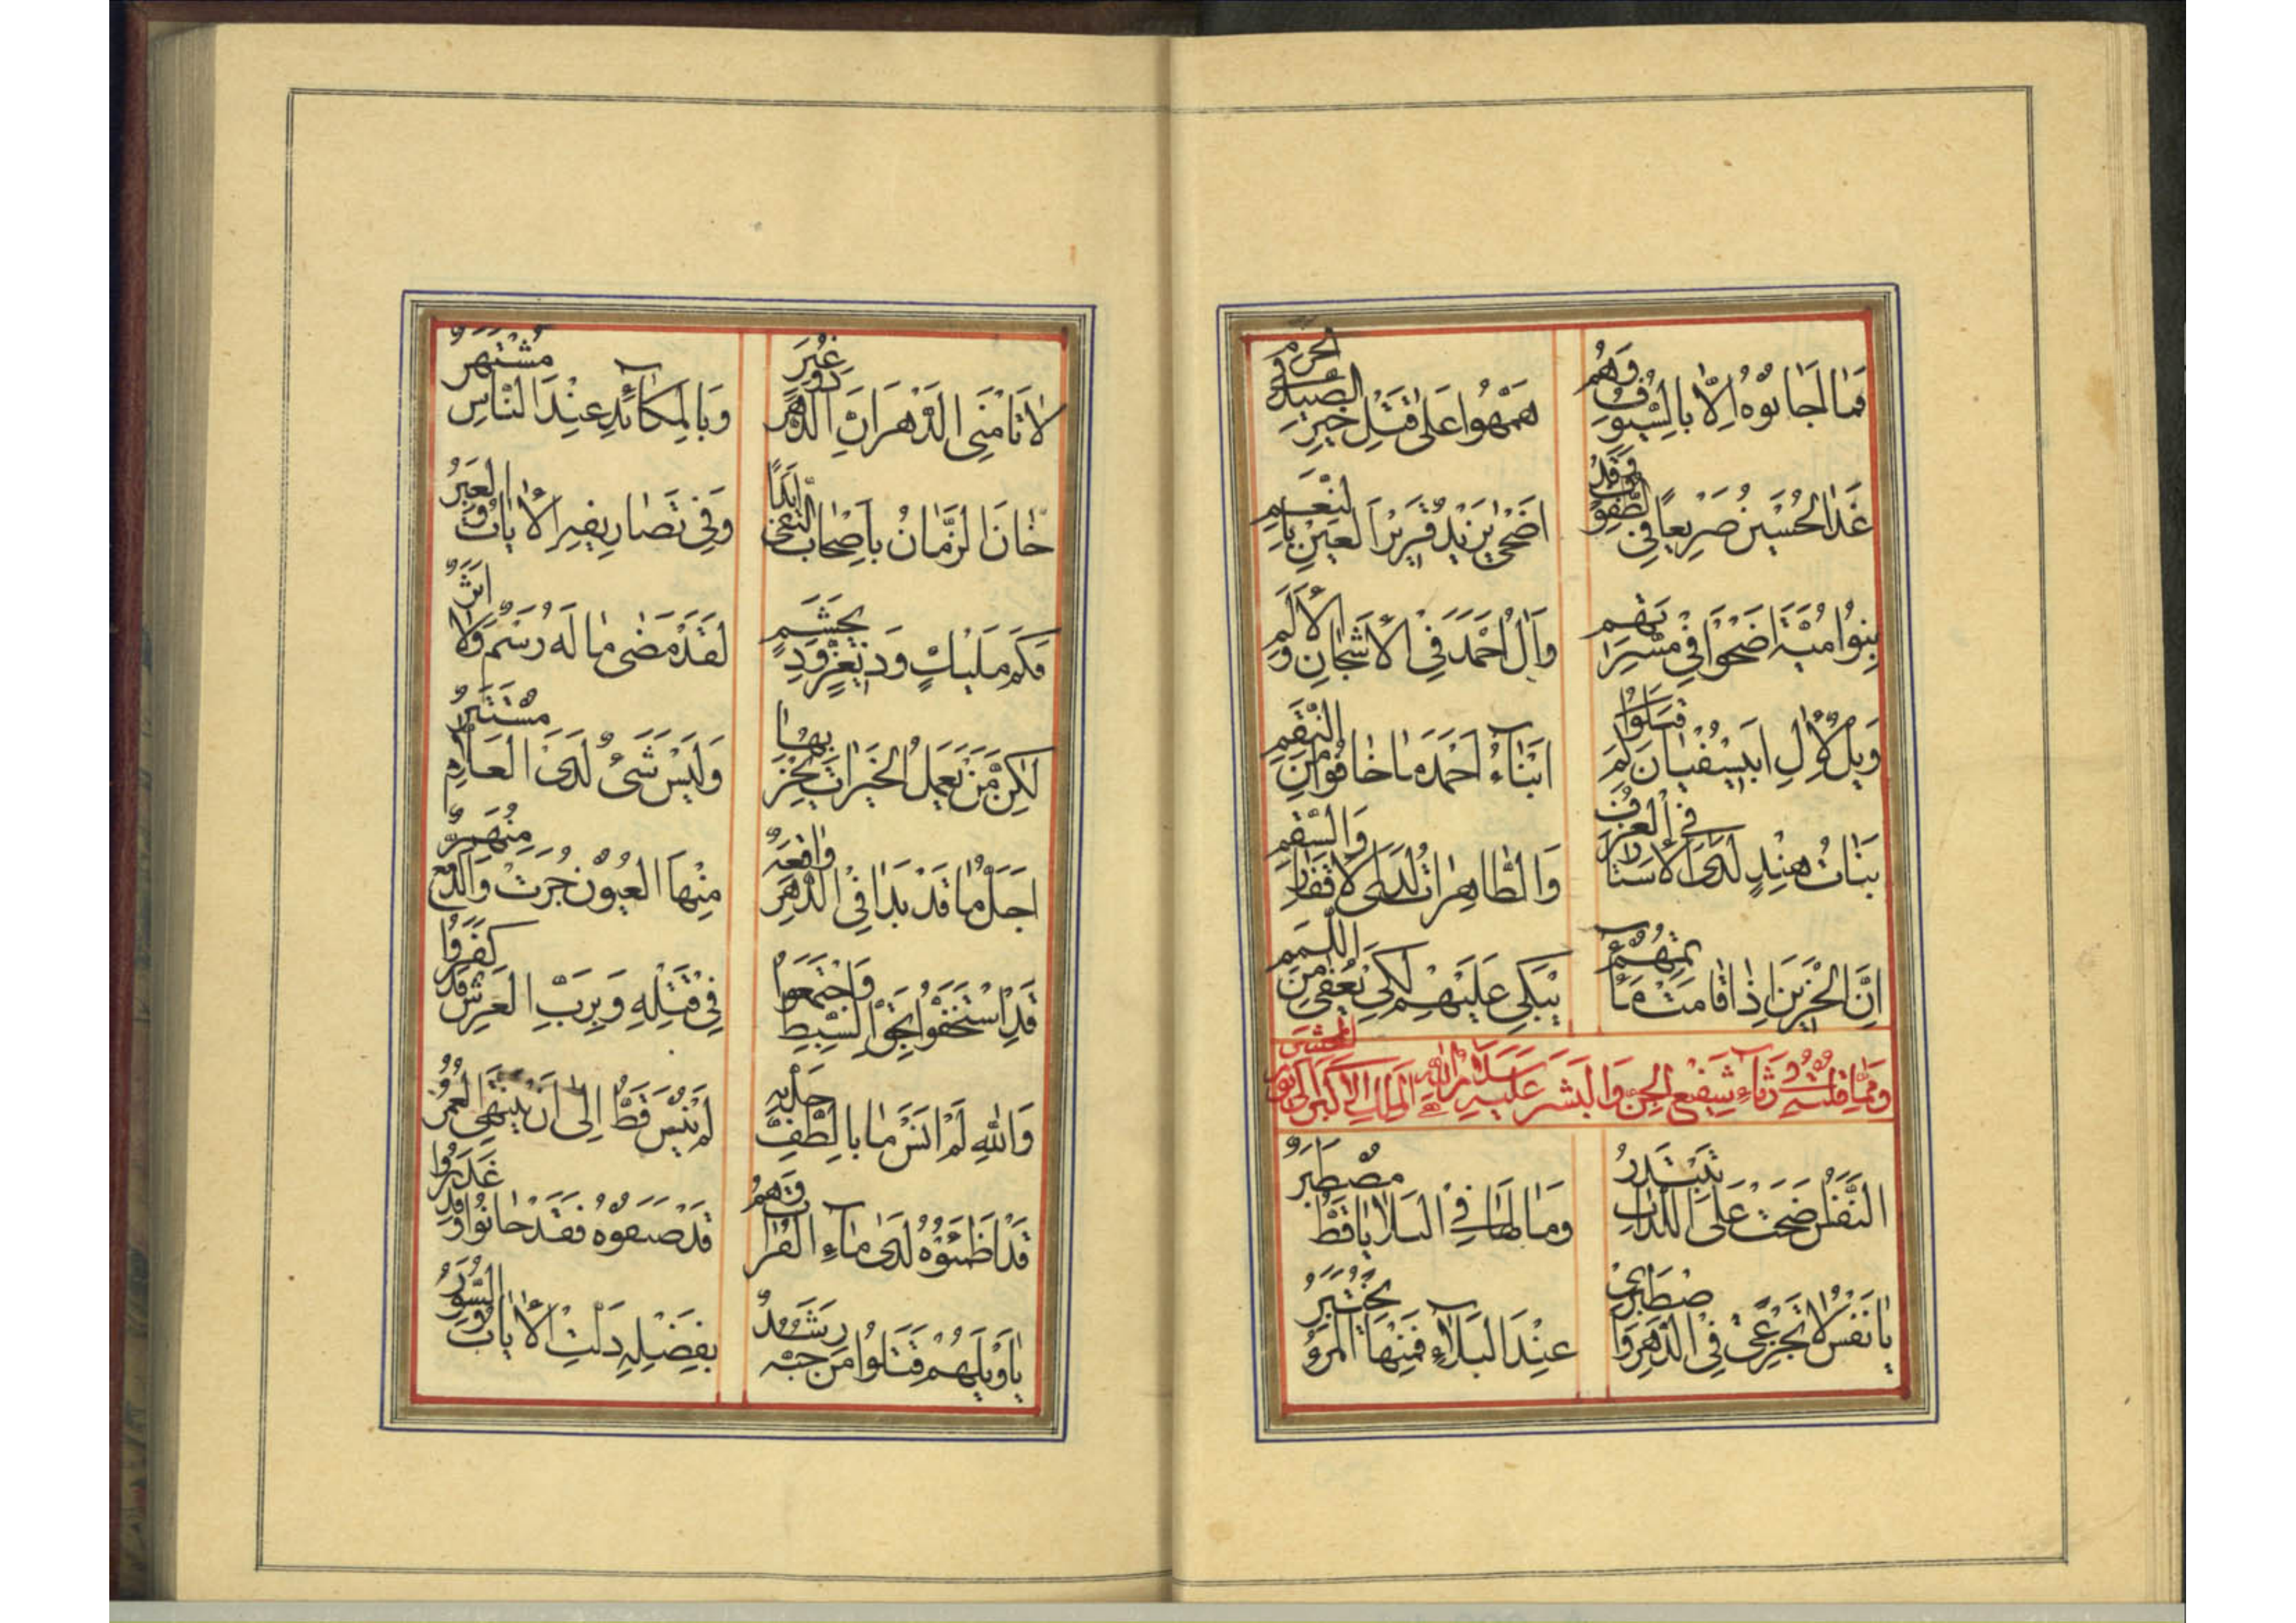 فَمَا لَجَابُوهُ اِلَّا بِالسُّيُوفِ وَهُمْ
هَمُّهُوا عَلٰى قَتْلِ خَيْرِ الصَّيْدِ فِى الْحَرَمِ
غَدَا الْحُسَيْنُ صَرِيعًا فِى الطُّفُوفِ وَقَدْ
اَضْحٰى يَزِيْدُ قَرِيْرَ الْعَيْنِ بِالنِّعَمِ
بَنُوا اُمَيَّةَ اَضْحَوْا فِى مَسَرَّتِهِمْ
وَاٰلُ اَحْمَدَ فِى الْاَشْجَانِ وَالْاَلَمِ
وَيْلٌ لِاٰلِ اَبِى سُفْيَانَ لَمْ قَتَلُوا
اَبْنَاءَ اَحْمَدَ مَا خَافُوا مِنَ النِّقَمِ
بَنَاتُ هِنْدٍ لَدَى الْاَسْتَارِ فِى الْغُرَفِ
وَالطَّاهِرَاتُ لَدَى الْاَقْفَارِ وَالسَّقَمِ
اِنَّ الْحَزِيْنَ اِذَا قَامَتْ مَاٰتِمُهُمْ
يَبْكِى عَلَيْهِمْ لِكَىْ يُعْفٰى مِنَ اللَّمَمِ
وَمِمَّا قُلْتُهُ فِى رِثَاءِ شَفِيعِ الْجِنِّ وَالْبَشَرِ عَلَيْهِ سَلَامُ اللّٰهِ الْمَلِكِ الْاَكْبَرِ اِلٰى يَوْمِ الْمَحْشَرِ
اَلنَّفْسُ ضَحَّتْ عَلَى اللَّذَّاتِ تَبْتَدِرُ
وَمَا لَهَا فِى الْبَلَايَا قَطُّ مُصْطَبَرٌ
يَا نَفْسُ لَا تَجْزَعِى فِى الدَّهْرِ وَاصْطَبِرِى
عِنْدَ الْبَلَاءِ فَمِنْهَا الْمَرْءُ يُخْتَبَرُ
لَا تَاْمَنِى الدَّهْرَ اِنَّ الدَّهْرَ ذُو غِيَرٍ
وَبِالْمَكَائِدِ عِنْدَ النَّاسِ مُشْتَهَرٌ
خَانَ الزَّمَانُ بِاَصْحَابِ التُّقٰى اَبَدًا
وَفِى تَصَارِيْفِهِ الْاٰيَاتُ وَالْعِبَرُ
فَكَمْ مَلِيْكٍ وَدِى عِزٍّ وَدِى حَشَمٍ
لَقَدْ مَضٰى مَا لَهُ رَسْمٌ وَلَا اَثَرٌ
لٰكِنَّ مَنْ يَعْمَلُ الْخَيْرَاتِ يُجْزَ بِهَا
وَلَيْسَ شَىْءٌ لَدَى الْعَلَّامِ مُسْتَتِرٌ
اَجَلُّ مَا قَدْ بَدَا فِى الدَّهْرِ وَاقِعَةٌ
مِنْهَا الْعُيُونُ جَرَتْ وَالدَّمْعُ مُنْهَمِرٌ
قَدِ اسْتَخَفُّوا بِحَقِّ السِّبْطِ وَاجْتَمَعُوا
فِى قَتْلِهِ وَبِرَبِّ الْعَرْشِ قَدْ كَفَرُوا
وَاللّٰهِ لَمْ اَنْسَ مَا بِالطَّفِّ حَلَّ بِهِ
لَمْ يُنْسَ قَطُّ اِلٰى اَنْ يَنْتَهِى الْعُمُرُ
قَدْ اَظْمَئُوهُ لَدٰى مَاءِ الْفُرَاتِ وَهُمْ
قَدْ ضَيَّعُوهُ فَقَدْ خَانُوا وَقَدْ غَدَرُوا
يَا وَيْلَهُمْ قَتَلُوا مَنْ حُبُّهُ رَشَدٌ
بِفَضْلِهِ دَلَّتِ الْاٰيَاتُ وَالسُّوَرُ